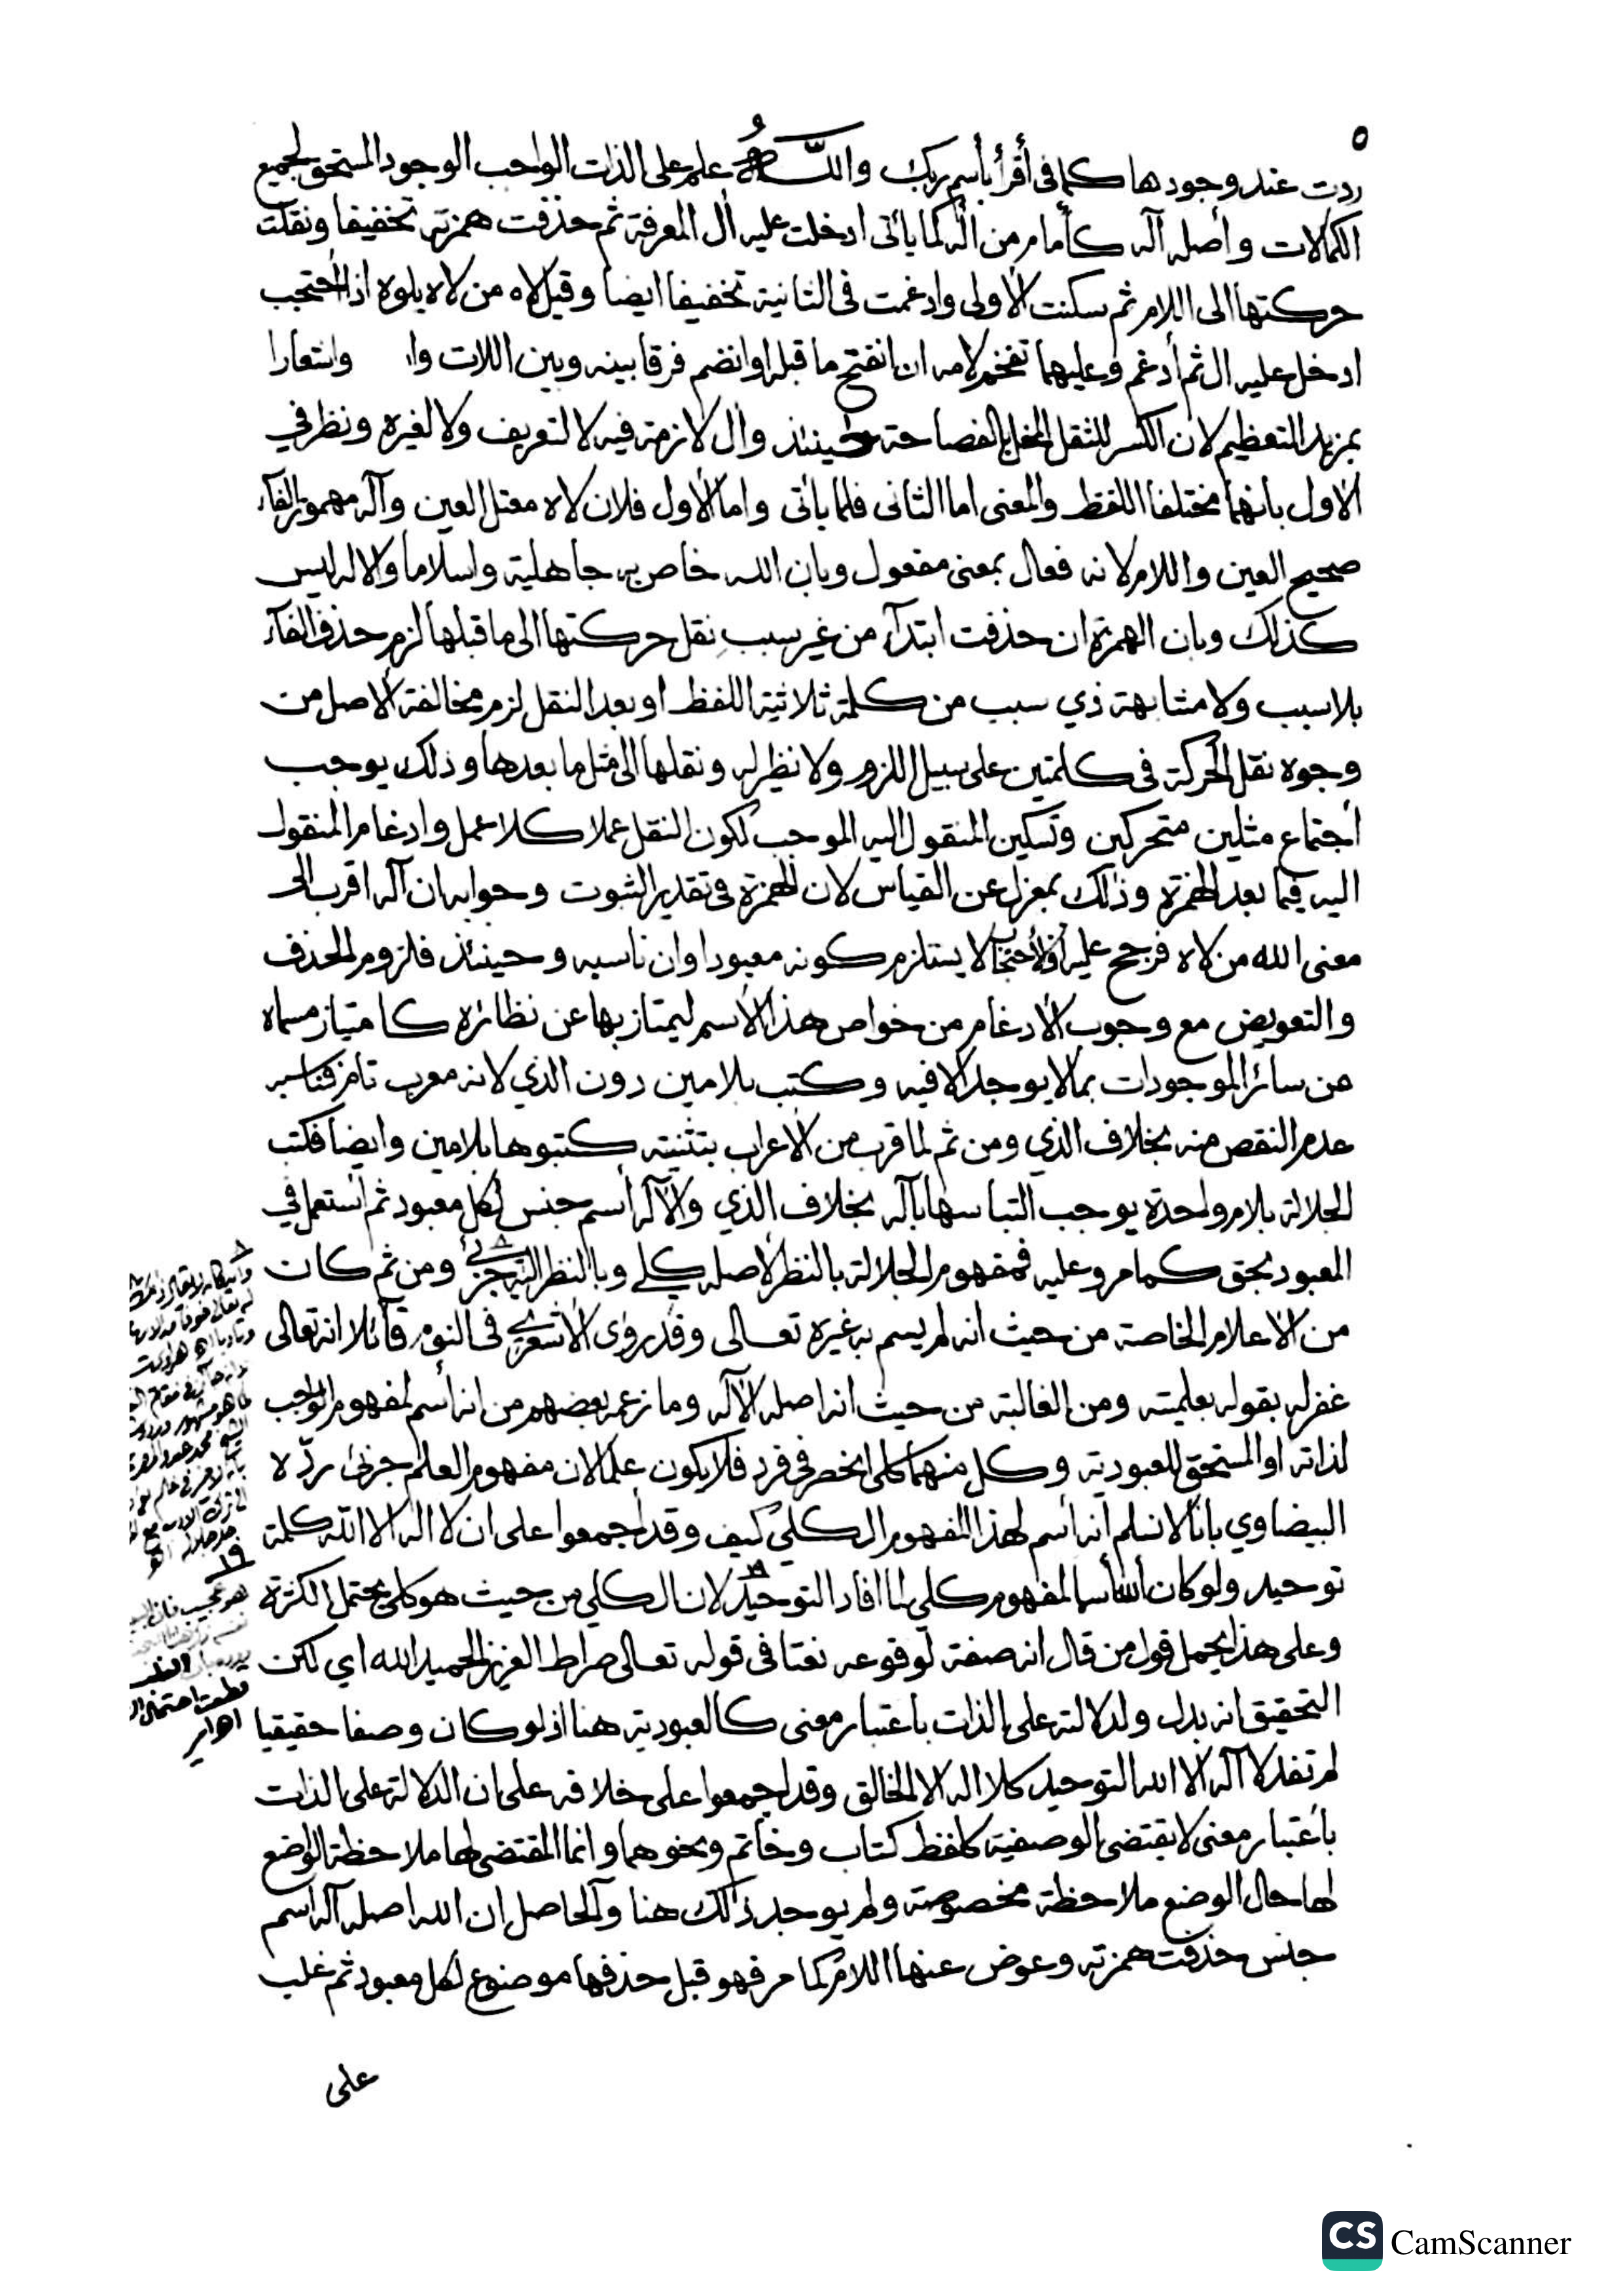 ٥
ردت عند وجودها كما فى أقرأ بأسم ربك واللَّهُ علم على الذات الواجب الوجود المستحق لجميع
الكمالات وأصله آله كأمام من أله كما يأتى ادخلت عليه أل المعرفة ثم حذفت همزته تخفيفا ونقلت
حركتها الى اللام ثم سكنت الأولى وادغمت فى الثانية تخفيفا ايضا وقيل لاه من لاه يلوه اذا احتجب
ادخل عليه ال ثم أدغم وعليهما تفخم لامه ان انفتح ما قبله او انضم فرقا بينه وبين اللات وا واشعارا
بمزيد التعظيم لان الكسر للثقل المخل بالفصاحة حينئذ وأل لازمة فيه لا لتعريف ولا لغيره ونظر في
الاول بانهما مختلفا اللفظ والمعنى اما الثانى فلما يأتى واما الأول فلان لاه معتل العين وآله مهموز الفآء
صحيح العين واللام لانه فعال بمعنى مفعول وبان الله خاص به جاهلية واسلاما والاله ليس
كذلك وبان الهمزة ان حذفت ابتدآء من غير سبب نقل حركتها الى ما قبلها لزم حذف الفآء
بلا سبب ولا مشابهة ذي سبب من كلمة ثلاثية اللفظ او بعد النقل لزم مخالفة الاصل من
وجوه نقل الحركة فى كلمتين على سبيل اللزوم ولا نظير له ونقلها الى مثل ما بعدها وذلك يوجب
أجتماع مثلين متحركين وتسكين المنقول اليه الموجب لكون النقل عملا كلا عمل وادغام المنقول
اليه فيما بعد الهمزة وذلك بمعزل عن القياس لان الهمزة فى تقدير الثبوت وجوابه ان آله اقرب الى
معنى الله من لاه فرجح عليه والاحتجاب لا يستلزم كونه معبودا وان ناسبه وحينئذ فلزوم الحذف
والتعويض مع وجوب الأدغام من خواص هذا الأسم ليمتاز بها عن نظائره كامتياز مسماه
عن سائر الموجودات بما لا يوجد الا فيه وكتب بلامين دون الذي لانه معرب تام فناسبه
عدم النقص منه بخلاف الذي ومن ثم لما قرب من الاعراب بتثنيته كتبوها بلامين وايضا فكتب
الجلالة بلام واحدة يوجب التباسها بآله بخلاف الذي والآله أسم جنس لكل معبود ثم أستعمل في
المعبود بحق كما مر وعليه فمفهوم الجلالة بالنظر لاصله كلي وبالنظر اليه جزئي ومن ثم كان
من الاعلام الخاصة من حيث انه لم يسم به غيره تعالى وقد روى الأشعري فى النوم قآئلا انه تعالى
غفر له بقوله بعلميته ومن الغالبة من حيث انه اصله الاآله وما زعمه بعضهم من انه أسم لمفهوم الواجب
لذاته او المستحق للعبودية وكل منهما كلى انحصر فى فرد فلا يكون علما لان مفهوم العلم جزئى ردّه
البيضاوي بانا لا نسلم أنه أسم لهذا المفهوم الكلي كيف وقد اجمعوا على ان لا اله الا الله كلمة
توحيد ولو كان الله أسما لمفهوم كلي لما افاد التوحيد لان الكلي من حيث هو كلى يحتمل الكثرة
وعلى هذا يحمل قول من قال انه صفة لوقوعه نعتا فى قوله تعالى صراط العزيز الحميد الله اي لكن
التحقيق انه بدل ولدلالته على الذات باعتبار معنى كالعبودية هنا اذ لو كان وصفا حقيقيا
لم تفد لا آله الا الله التوحيد كلا اله الا الخالق وقد اجمعوا على خلافه على ان الدلالة على الذات
بأعتبار معنى لا يقتضى الوصفية كلفظ كتاب وخاتم ونحوهما وانما المقتضى لها ملاحظة الواضع
لها حال الوضع ملاحظة مخصوصة ولم يوجد ذلك هنا والحاصل ان الله اصله آله اسم
جنس حذفت همزته وعوض عنها اللام كما مر فهو قبل حذفها موضوع لكل معبود ثم غلب
على
CS CamScanner